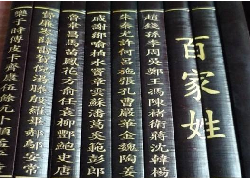 百家姓
趙錢孫李周吳鄭王馮陳褚衛蔣沈韓楊
朱秦尤許何呂施張孔曹嚴華金魏陶姜
戚謝鄒喻柏水竇章雲蘇潘葛奚范彭郎
魯韋昌馬苗鳳花方俞任袁柳酆鮑史唐
費廉岑薛雷賀倪湯滕殷羅畢郝鄔安常
樂于時傅皮卞齊康伍餘元卜顧孟平